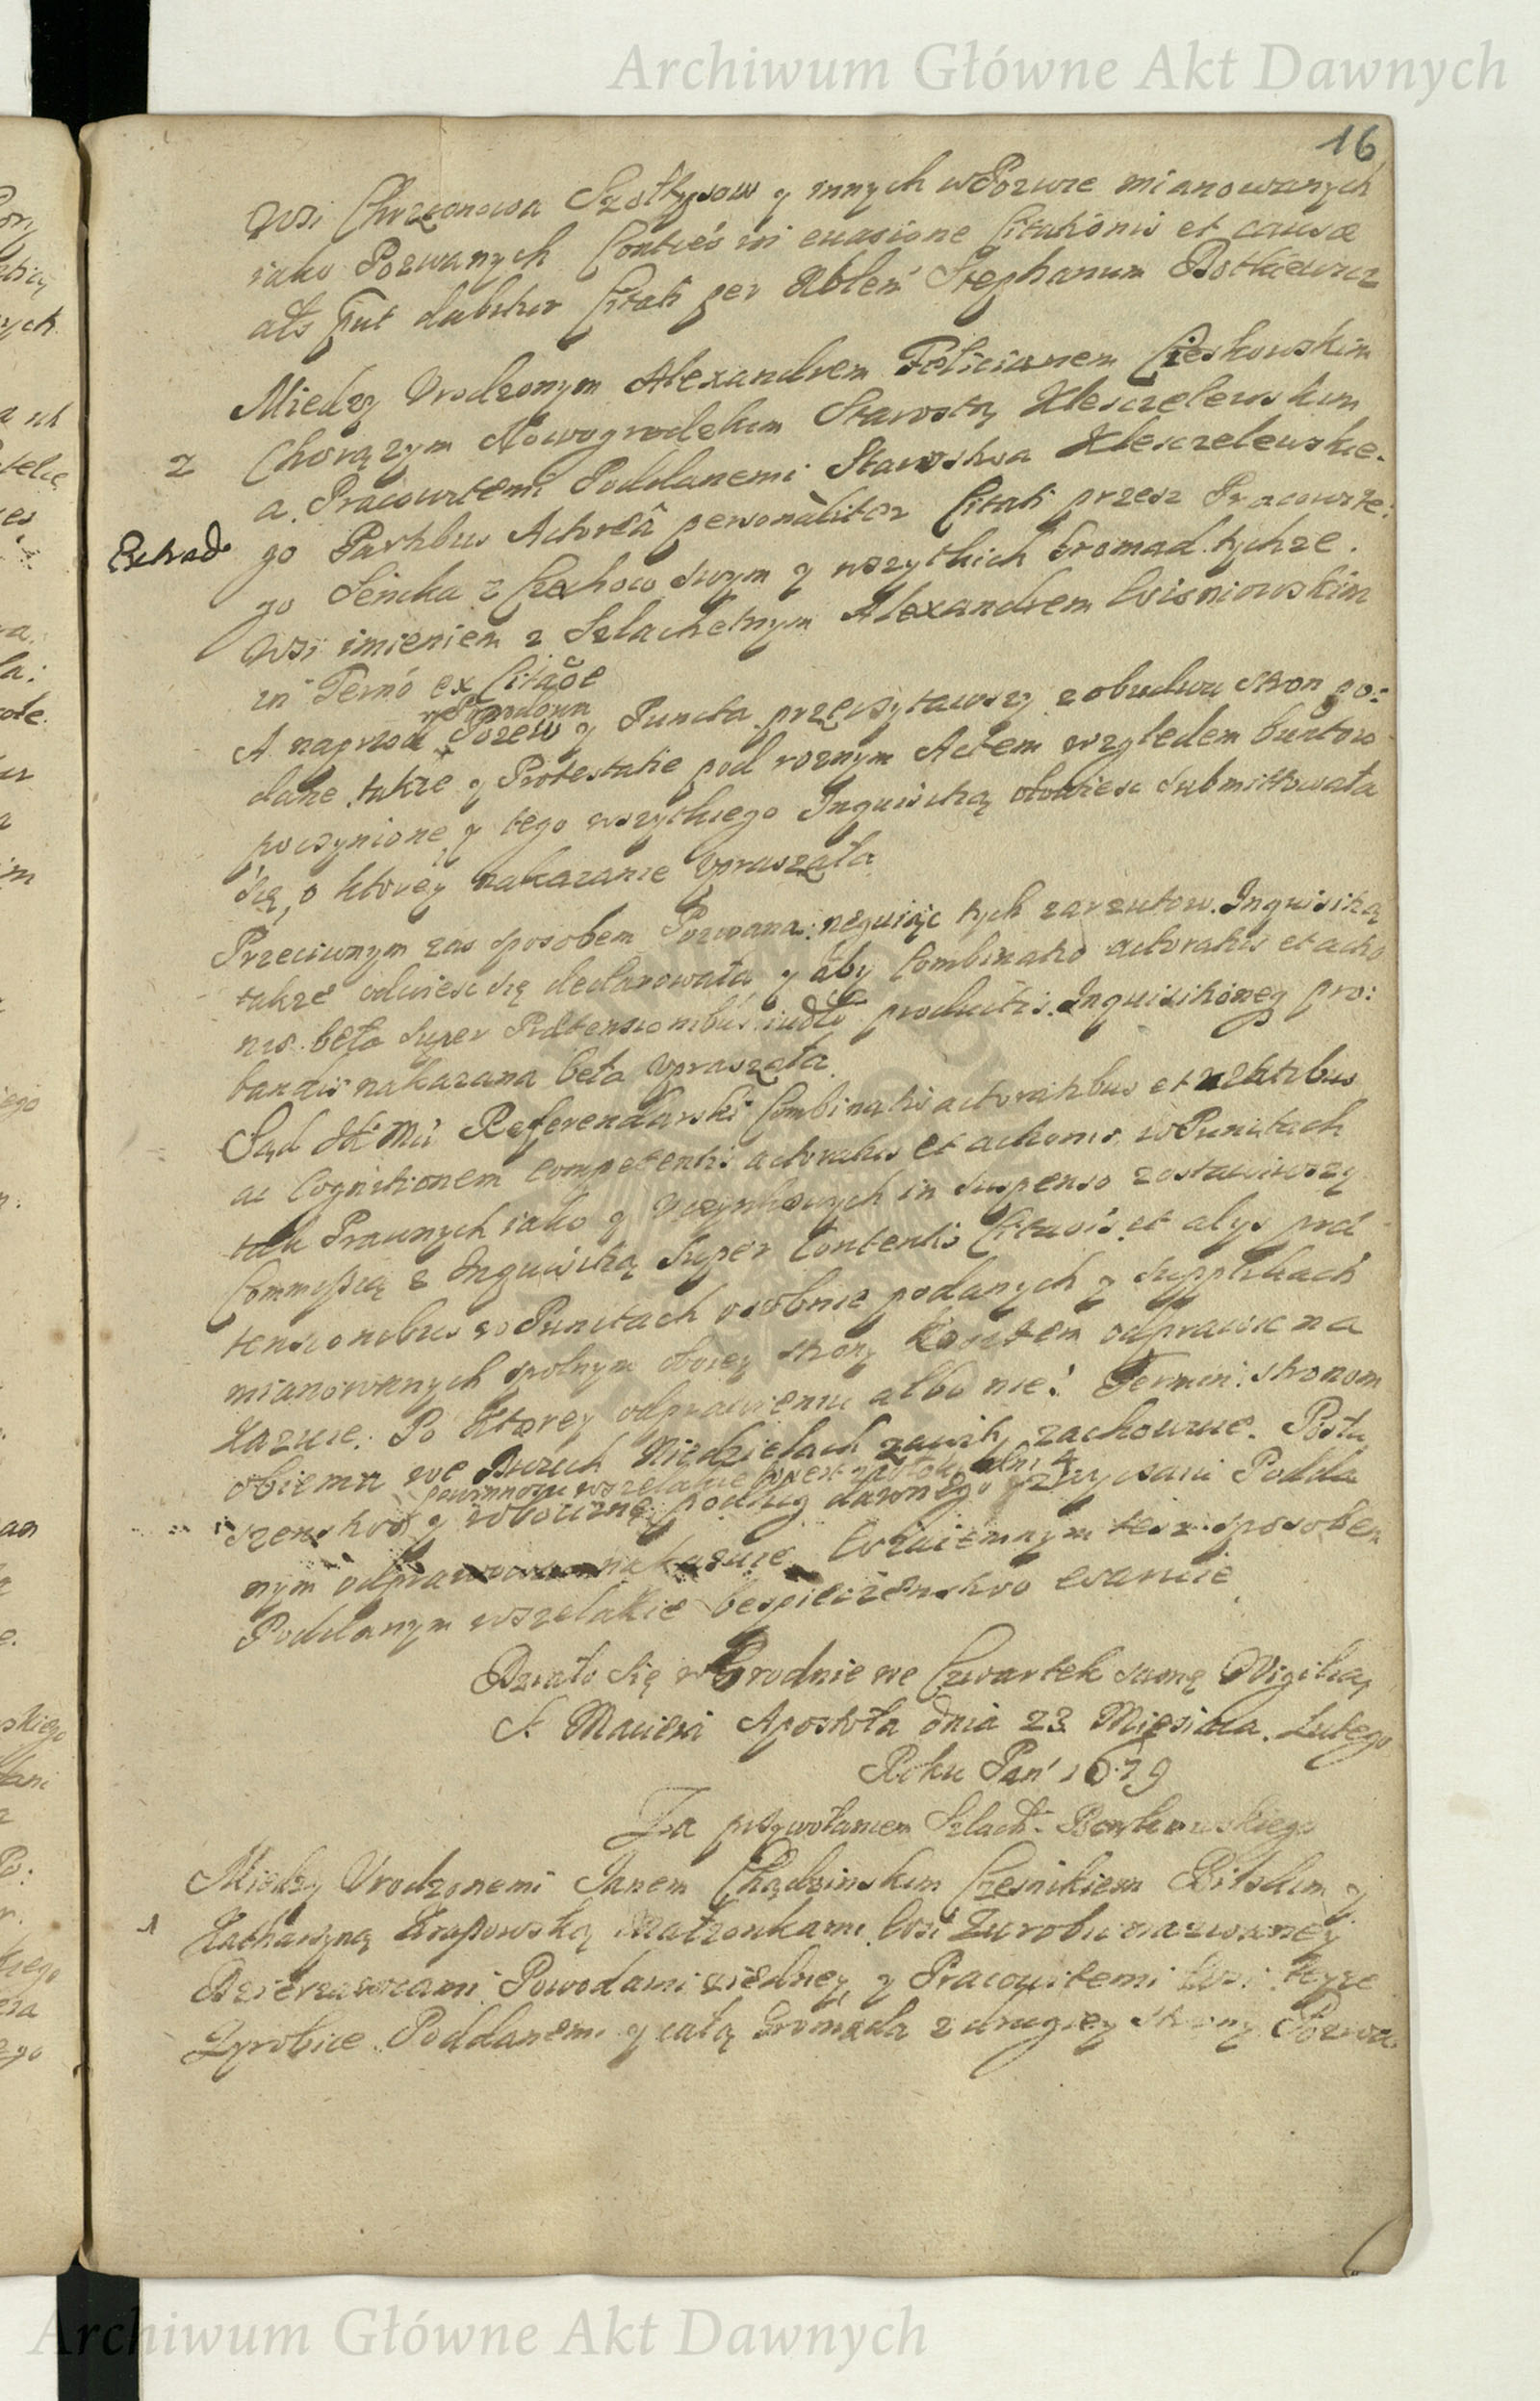 Archiwum Główne Akt Dawnych
16
Wsi Chrzanowa Szołtysow y innych w Pozwie mianowanych
iako Pozwanych Contles in euasione Citationis et causæ
als put dabitur Citati per Nblem Stephanum Botkiewicz
Między Vrodzonym Alexandrem Felicianem Cieskowskim
2 Chorążym Nowogrodzkim Starostą Klesczelewskim
a Pracowitemi Poddanemi Starostwa Klesczelewskie-
Extrad
go Partibus Actorea personaliter Citati przesz Pracowite:
go Sencka z Czechow swym y wszytkich Gromad tychze
Wsi imieniem z Szlachetnym Alexandrem Wisniowskim
in Termo ex Citaoe
A naprzod Pozew y Puncta przeczytawszy z obudwu stron po:
dane, także y Protestatie pod roznym Actem względem buntow
poczynione, y tego wszytkiego Inquisitią dowiesc submittowała
się, o ktorey nakazanie vpraszała
Przeciwnym zas sposobem Pozwana neguiąc tych zarzutow. Inquisitią
także odwiesc się declarowała y aby Combinatio actoratus et actio
nis beła super Prætensionibus productis. Inquisitioney pro:
bandis nakazana beła vpraszała
Sąd JKMci Referendarski Combinatis actoratibus et actibus
ac Cognitionem competentis actoratus et actionis, w Punctach
tak Prawnych iako y vczynkowych in suspenso zostawiwszy
Commissią z Inquisitią super Contentis Citaois et alys præ
tensionibus w Punctach osobnie podanych y supplikach
mianowanych spolnym oboiey strony kosztem odprawic na
kazuie. Po ktorey odprawieniu albo nie: Termin stronom
obiema we Dwuch Niedzielach zawity zachowuie. Posłu
powinnosci wszelakie
szenstwo y robociznę podług dawnego zwyczaiu Podda
nym odprawowac nakazuie. Wzaiemnym tesz sposobem
Poddanym wszelakie bespieczenstwo waruie
Działo się w Grodnie we Czwartek samą Wigilią
S. Macieia Apostoła dnia 23 Miesiąca Lutego
Roku Pan 1679
Za przywołaniem Szlach. Borkowskiego
Między Vrodzonemi Janem Chądzinskim Czesnikiem Bilskim y
1 Katharzyną Małzonkami Wsi Zurobic nazwaney
Dzierzawcami Powodami ziedney, y Pracowitemi Wsi teyze
Zyrobice Poddanemi y całą Gromadą z drugiey strony Pozwa
Archiwum Główne Akt Dawnych